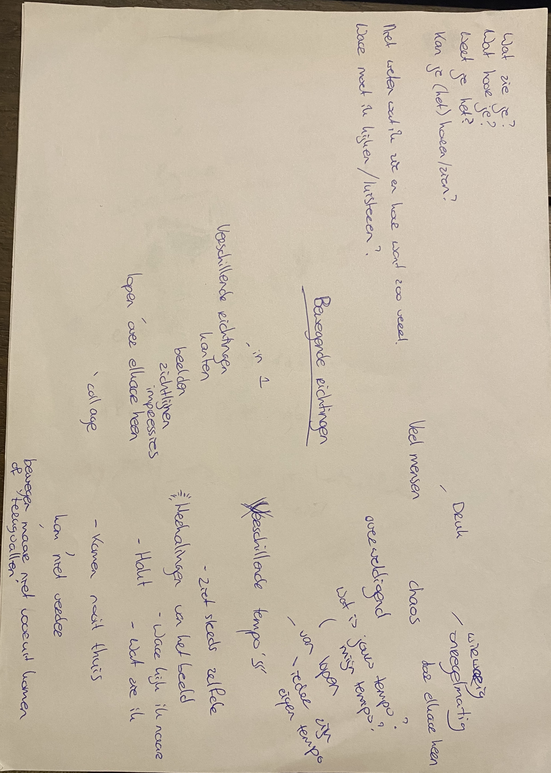 Wat zie je?
Wat hoor je?
Weet je het?
Kan je (het) horen/zien?
Niet weten wat ik zie en hoor want zoo veel.
Waar moet ik kijken/luisteren?
Veel mensen
Druk
wirwarrig
onregelmatig
door elkaar heen
chaos
overweldigend
wat is jouw tempo?
mijn tempo?
van lopen
ieder zijn
eigen tempo
Bewegende richtingen
in 1
Verschillende richtingen
kanten
beelden
zichtlijnen
impressies
lopen over elkaar heen
collage
Verschillende tempo's
- ziet steeds zelfde
Herhalingen van het beeld
- Waar kijk ik naar
- Halt
- Wat zie ik
- Komen nooit thuis
kan niet verder
bewegen maar niet vooruit komen
of terugvallen